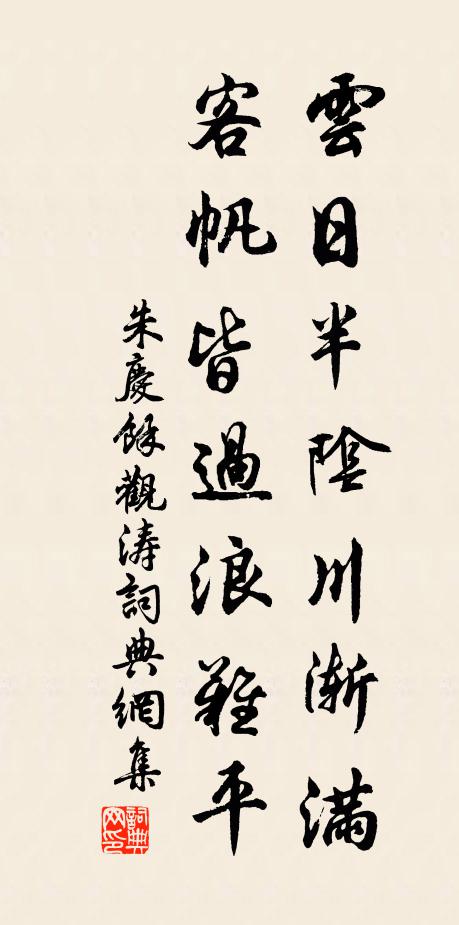 雲日半陰川漸滿
客帆皆過浪難平
朱慶餘觀涛詞典網集
詞典網印